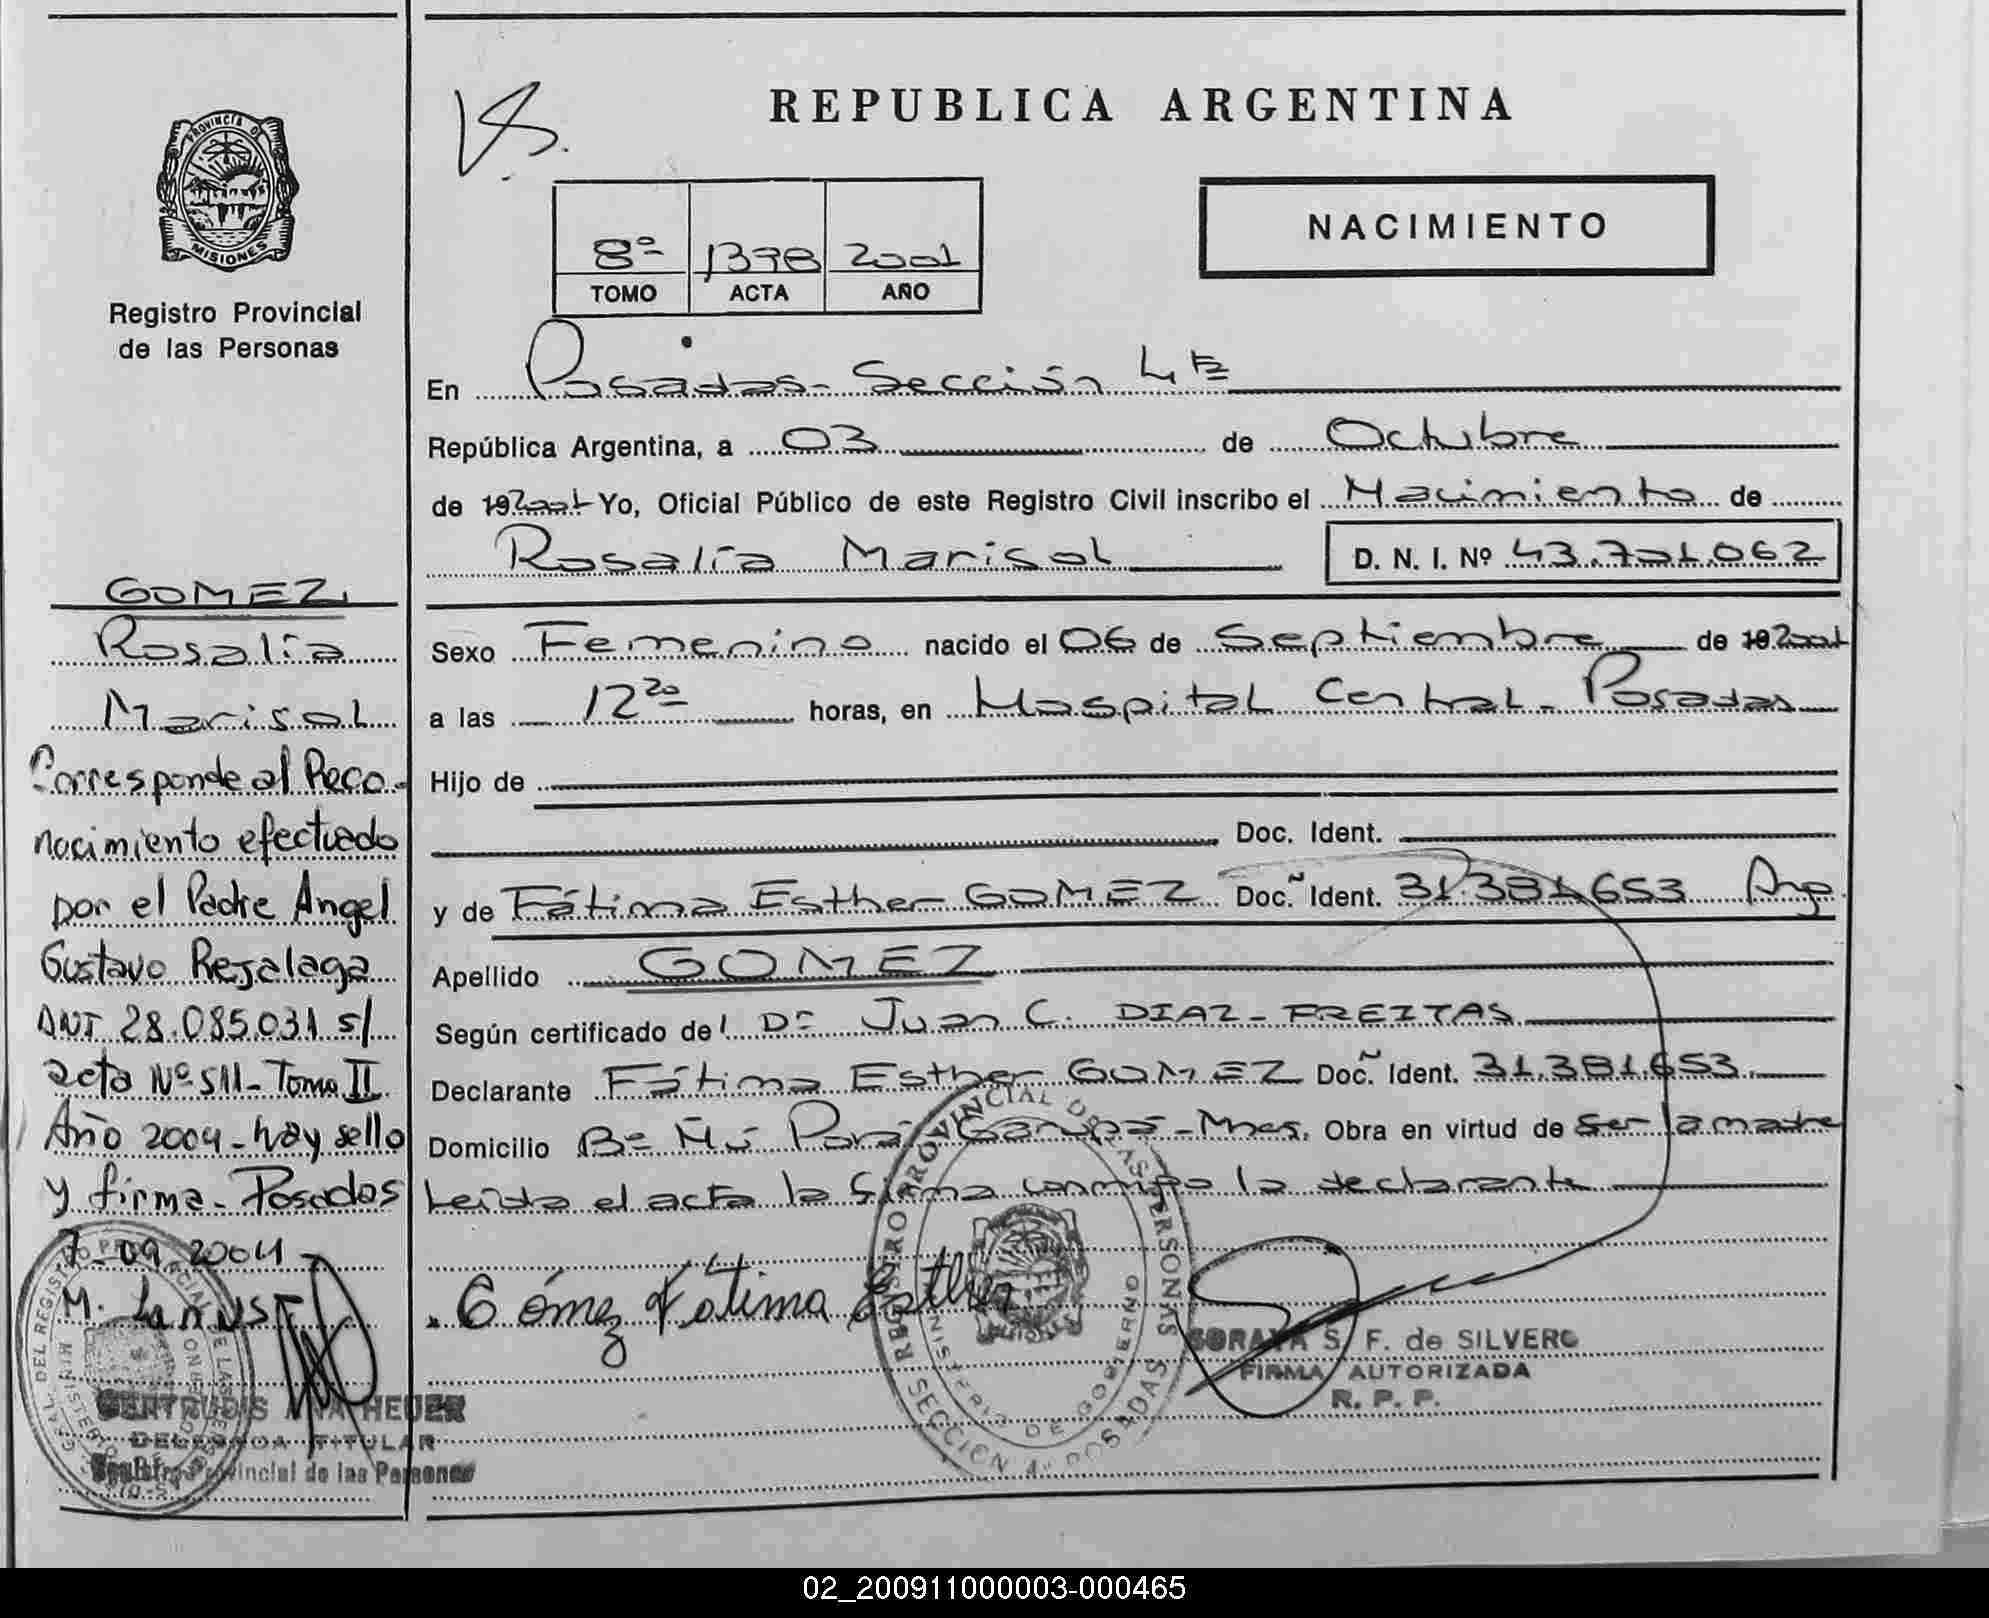 REPUBLICA ARGENTINA
PROVINCIA DE
MISIONES
Registro Provincial
de las Personas
NACIMIENTO
8º 1398 2001
TOMO ACTA AÑO
En Posadas - Sección 4ta
República Argentina, a 03 de Octubre
de 19 2001 Yo, Oficial Público de este Registro Civil inscribo el Nacimiento de
Rosalía Marisol D. N. I. Nº 43.701.062
Sexo Femenino nacido el 06 de Septiembre de 19 2001
a las 12 20 horas, en Hospital Central - Posadas
Hijo de
Doc. Ident.
y de Fátima Esther GOMEZ Doc. Ident. 31.381.653 Arg.
Apellido GOMEZ
Según certificado de l Dr Juan C. DIAZ - FREITAS
Declarante Fátima Esther GOMEZ Doc. Ident. 31.381.653
Domicilio Bº Ñú Porá Garupá - Mnes. Obra en virtud de ser la madre
Leída el acta la firma conmigo la declarante
Gómez Fátima Esther
SORAYA S. F. de SILVERO
FIRMA AUTORIZADA
R. P. P.
REGISTRO PROVINCIAL DE LAS PERSONAS
MINISTERIO DE GOBIERNO
SECCION 4ª POSADAS
GOMEZ,
Rosalía
Marisol
Corresponde al Reco-
nocimiento efectuado
por el Padre Angel
Gustavo Rejalaga
DNI 28.085.031 s/
acta Nº 511 - Tomo II
Año 2004 - hay sello
y firma - Posadas
7-09-2004
GERTRUDIS HEUER
DELEGADA TITULAR
Registro Provincial de las Personas
02_200911000003-000465